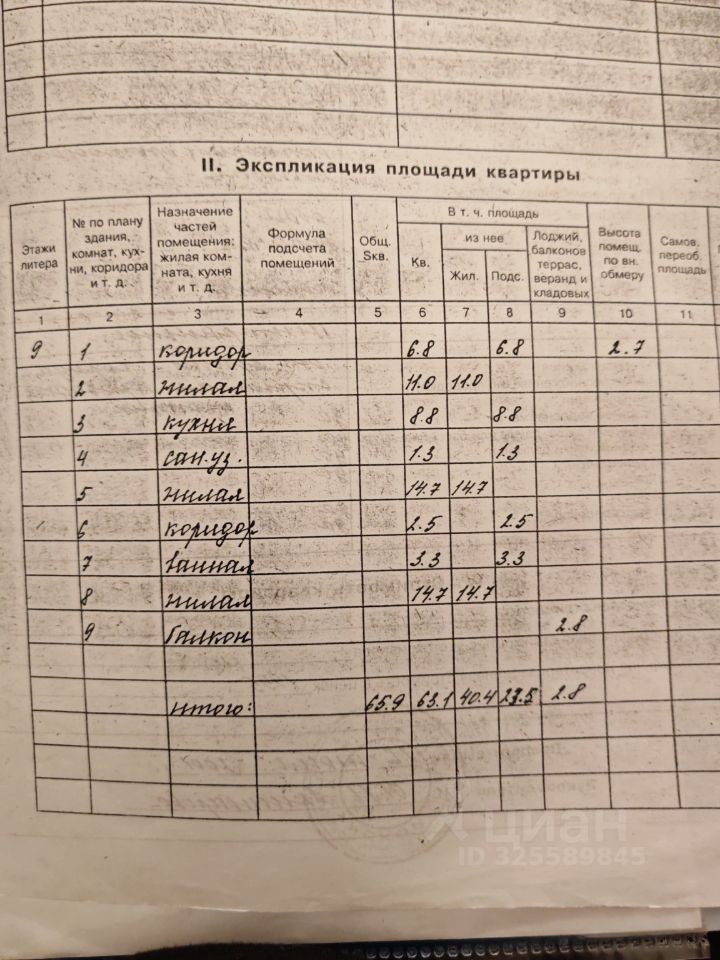 II. Экспликация площади квартиры
Этажи литера | № по плану здания, комнат, кухни, коридора и т. д. | Назначение частей помещения: жилая комната, кухня и т. д. | Формула подсчета помещений | Общ. Sкв. | В т. ч. площадь | Высота помещ. по вн. обмеру | Самов. переоб. площадь
Кв. | из нее | Лоджий, балконов террас, веранд и кладовых
Жил. | Подс.
1 | 2 | 3 | 4 | 5 | 6 | 7 | 8 | 9 | 10 | 11
9 | 1 | коридор | 6.8 | 6.8 | 2.7
2 | жилая | 11.0 | 11.0
3 | кухня | 8.8 | 8.8
4 | сан.уз. | 1.3 | 1.3
5 | жилая | 14.7 | 14.7
6 | коридор | 2.5 | 2.5
7 | ванная | 3.3 | 3.3
8 | жилая | 14.7 | 14.7
9 | балкон | 2.8
итого: | 65.9 | 63.1 | 40.4 | 2.8
циан
ID 325589845